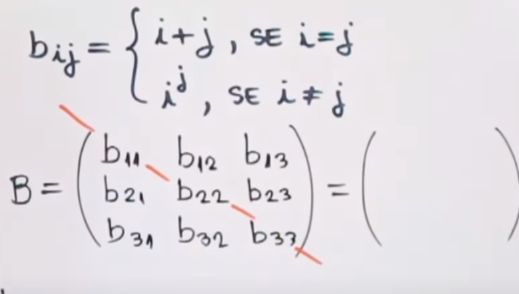 bij = { i+j, SE i=j
i^j, SE i≠j
B = ( b11 b12 b13
b21 b22 b23
b31 b32 b33 ) = ( )